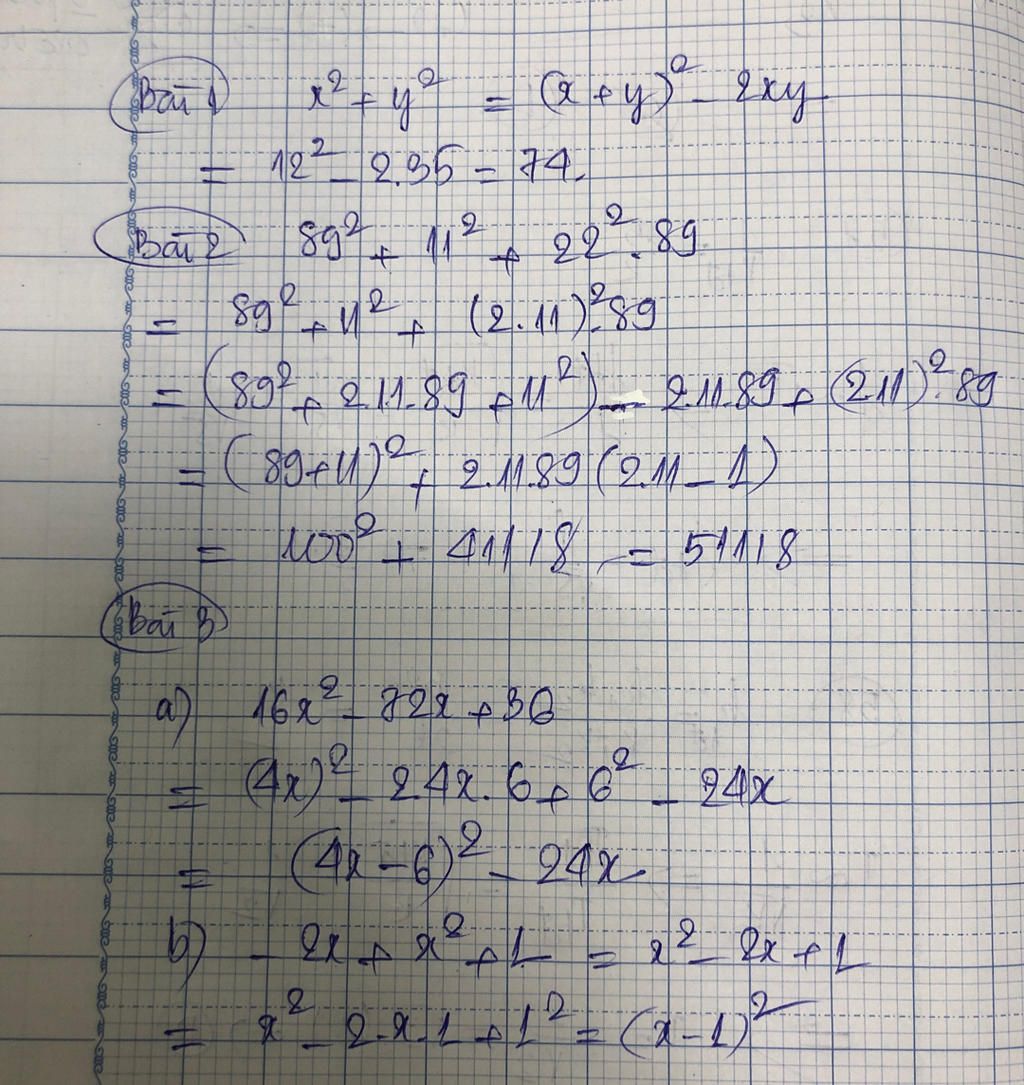 Bài 1 x² + y² = (x + y)² - 2xy
= 12² - 2.35 = 74.
Bài 2 89² + 11² + 22² . 89
= 89² + 11² + (2.11)².89
= (89² + 2.11.89 + 11²) - 2.11.89 + (2.11)².89
= (89+11)² + 2.11.89 (2.11 - 1)
= 100² + 41118 = 51118
Bài 3
a) 16x² - 72x + 36
= (4x)² - 2.4x.6 + 6² - 24x
= (4x - 6)² - 24x
b) - 2x + x² + 1 = x² - 2x + 1
= x² - 2.x.1 + 1² = (x - 1)²